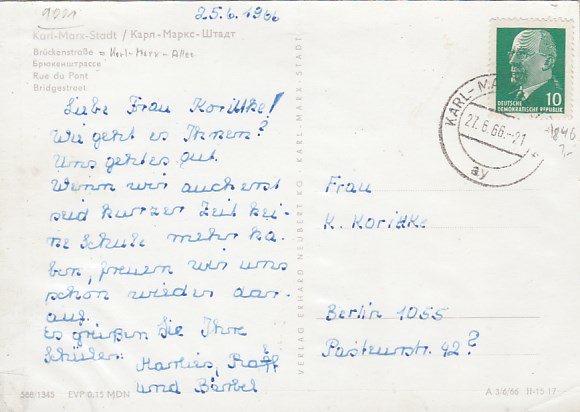 9011
25.6.1966
Karl-Marx-Stadt / Карл-Маркс-Штадт
Brückenstraße = Karl-Marx-Allee
Брюкенштрассе
Rue du Pont
Bridgestreet
Liebe Frau Koridtke!
Wie geht es Ihnen?
Uns geht es gut.
Wenn wir auch erst
seid kurzer Zeit kei-
ne Schule mehr ha-
ben, freuen wir uns
schon wieder dar-
auf.
Es grüßen Sie Ihre
Schüler: Marlies, Ralf
und Bärbel
588/1345 EVP 0,15 MDN
VERLAG ERHARD NEUBERT KG · KARL-MARX-STADT
10
DEUTSCHE
DEMOKRATISCHE REPUBLIK
KARL-MA
27.6.66.-21
ay
Frau
K. Koridtke
Berlin 1055
Pasteurstr. 42?
A 3/6/66 II-15-17